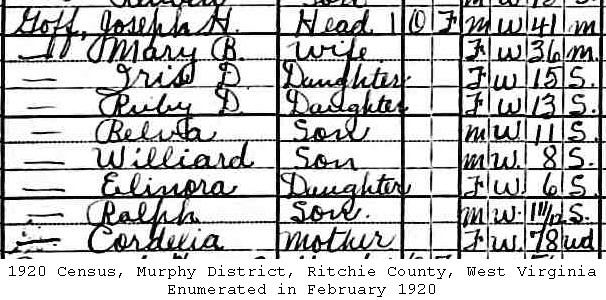 Goff, Joseph H. Head 1 O F M W 41 M
— Mary B. Wife F W 36 M.
— Iris D. Daughter F W 15 S.
— Ruby D. Daughter F W 13 S.
— Belva Son M W 11 S.
— Williard Son M W. 8 S.
— Elinora Daughter F W. 6 S.
— Ralph Son. M W. 1 11/12 S.
— Cordelia Mother F W. 78 Wd
1920 Census, Murphy District, Ritchie County, West Virginia
Enumerated in February 1920